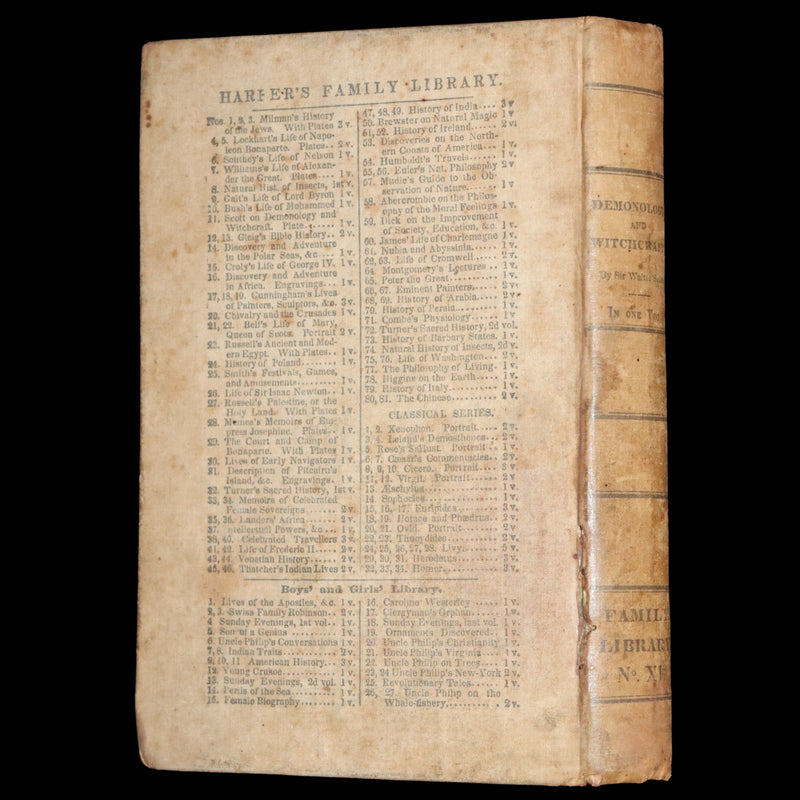 HARPER'S FAMILY LIBRARY.
Nos. 1, 2, 3. Milman's History
of the Jews. With Plates 3 v.
4, 5. Lockhart's Life of Napo-
leon Bonaparte. Plates.. 2 v.
6. Southey's Life of Nelson 1 v.
7. Williams's Life of Alexan-
der the Great. Plates.... 1 v.
8. Natural Hist. of Insects, 1st v.
9. Galt's Life of Lord Byron 1 v.
10. Bush's Life of Mohammed 1 v.
11. Scott on Demonology and
Witchcraft. Plate....... 1 v.
12, 13. Gleig's Bible History.. 2 v.
14. Discovery and Adventure
in the Polar Seas, &c.... 1 v.
15. Croly's Life of George IV. 1 v.
16. Discovery and Adventure
in Africa. Engravings... 1 v.
17, 18, 19. Cunningham's Lives
of Painters, Sculptors, &c. 3 v.
20. Chivalry and the Crusades 1 v.
21, 22. Bell's Life of Mary,
Queen of Scots. Portrait 2 v.
23. Russell's Ancient and Mod-
ern Egypt. With Plates.. 1 v.
24. History of Poland........ 1 v.
25. Smith's Festivals, Games,
and Amusements......... 1 v.
26. Life of Sir Isaac Newton.. 1 v.
27. Russell's Palestine, or the
Holy Land. With Plates 1 v.
28. Memes's Memoirs of Em-
press Josephine. Plates.. 1 v.
29. The Court and Camp of
Bonaparte. With Plates 1 v.
30. Lives of Early Navigators 1 v.
31. Description of Pitcairn's
Island, &c. Engravings. 1 v.
32. Turner's Sacred History, 1st v.
33, 34. Memoirs of Celebrated
Female Sovereigns...... 2 v.
35, 36. Landers' Africa...... 2 v.
37. Intellectual Powers, &c... 1 v.
38, 40. Celebrated Travellers 3 v.
41, 42. Life of Frederic II.... 2 v.
43, 44. Venetian History...... 2 v.
45, 46. Thatcher's Indian Lives 2 v.
47, 48, 49. History of India.... 3 v
50. Brewster on Natural Magic 1 v
51, 52. History of Ireland...... 2 v
53. Discoveries on the North-
ern Coasts of America.... 1 v.
54. Humboldt's Travels...... 1 v.
55, 56. Euler's Nat. Philosophy 2 v
57. Mudie's Guide to the Ob-
servation of Nature....... 1 v
58. Abercrombie on the Philos-
ophy of the Moral Feelings 1 v.
59. Dick on the Improvement
of Society, Education, &c. 1 v.
60. James' Life of Charlemagne 1 v.
61. Nubia and Abyssinia..... 1 v.
62, 63. Life of Cromwell..... 2 v.
64. Montgomery's Lectures .. 1 v.
65. Peter the Great.......... 1 v.
66, 67. Eminent Painters,..... 2 v.
68, 69. History of Arabia..... 2 v.
70. History of Persia......... 1 v.
71. Combe's Physiology...... 1 v.
72. Turner's Sacred History, 2d vol.
73. History of Barbary States. 1 v.
74. Natural History of Insects, 2d v.
75, 76. Life of Washington... 2 v.
77. The Philosophy of Living. 1 v.
78. Higgins on the Earth..... 1 v.
79. History of Italy.......... 1 v.
80, 81. The Chinese.......... 2 v.
CLASSICAL SERIES.
1, 2. Xenophon. Portrait.... 2 v.
3, 4. Leland's Demosthenes.. 2 v.
5. Rose's Sallust. Portrait .. 1 v.
6, 7. Cæsar's Commentaries.. 2 v.
8, 9, 10. Cicero. Portrait.... 3 v.
11, 12. Virgil. Portrait...... 2 v.
13. Æschylus............... 1 v.
14. Sophocles............... 1 v.
15, 16, 17. Euripides........ 3 v.
18, 19. Horace and Phædrus.. 2 v.
20, 21. Ovid. Portrait....... 2 v.
22, 23. Thucydides.......... 2 v.
24, 25, 26, 27, 28. Livy...... 5 v.
29, 30, 31. Herodotus....... 3 v.
32, 33, 34. Homer.......... 3 v.
Boys' and Girls' Library.
1. Lives of the Apostles, &c. 1 v.
2, 3. Swiss Family Robinson.. 2 v.
4 Sunday Evenings, 1st vol.. 1 v.
5. Son of a Genius ......... 1 v.
6. Uncle Philip's Conversations 1 v.
7, 8. Indian Traits .......... 2 v.
9, 10, 11 American History... 3 v.
12. Young Crusoe........... 1 v.
13. Sunday Evenings, 2d vol. 1 v.
14. Perils of the Sea......... 1 v.
15. Female Biography........ 1 v.
16. Caroline Westerley ..... 1 v.
17. Clergyman's Orphan..... 1 v.
18. Sunday Evenings, last vol. 1 v.
19. Ornaments Discovered.. 1 v.
20. Uncle Philip's Christianity 1 v.
21. Uncle Philip's Virginia... 1 v.
22. Uncle Philip on Trees.... 1 v.
23, 24 Uncle Philip's New-York 2 v.
25. Revolutionary Tales...... 1 v.
26, 27. Uncle Philip on the
Whale-fishery.......... 2 v.
DEMONOLOGY
AND
WITCHCRAFT
By Sir Walter
IN ONE
FAMILY
LIBRARY
No. XI